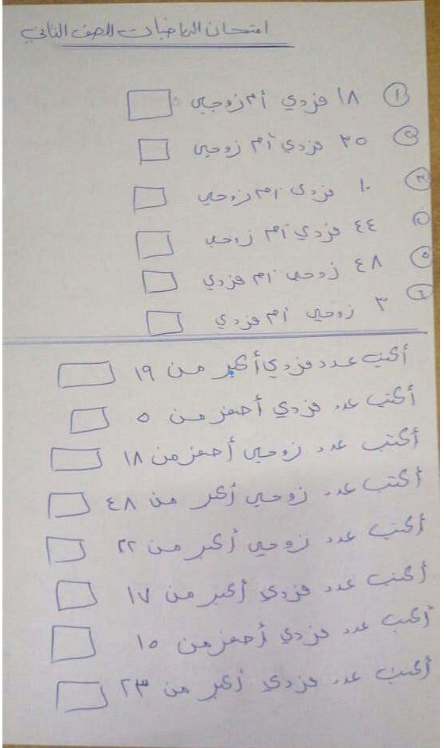 امتحان الرياضيات للصف الثاني
① ١٨ فردي أم زوجي
② ٢٥ فردي أم زوجي
③ ١٠ فردي أم زوجي
٤٤ فردي أم زوجي
⑤ ٤٨ زوجي أم فردي
⑥ ٣ زوجي أم فردي
أكتب عدد فردي أكبر من ١٩
أكتب عدد فردي أصغر من ٥
أكتب عدد زوجي أصغر من ١٨
أكتب عدد زوجي أكبر من ٤٨
أكتب عدد زوجي أكبر من ٢٢
أكتب عدد فردي أكبر من ١٧
أكتب عدد فردي أصغر من ١٥
أكتب عدد فردي أكبر من ٢٣